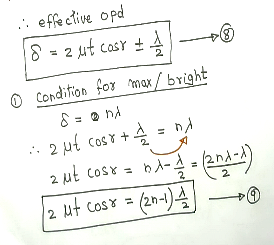 ∴ effective opd
δ = 2 μt cosr ± λ/2 → ⑧
① Condition for max/bright
δ = nλ
∴ 2 μt cosr + λ/2 = nλ
2 μt cosr = nλ - λ/2 = (2nλ-λ/2)
2 μt cosr = (2n-1) λ/2 → ⑨